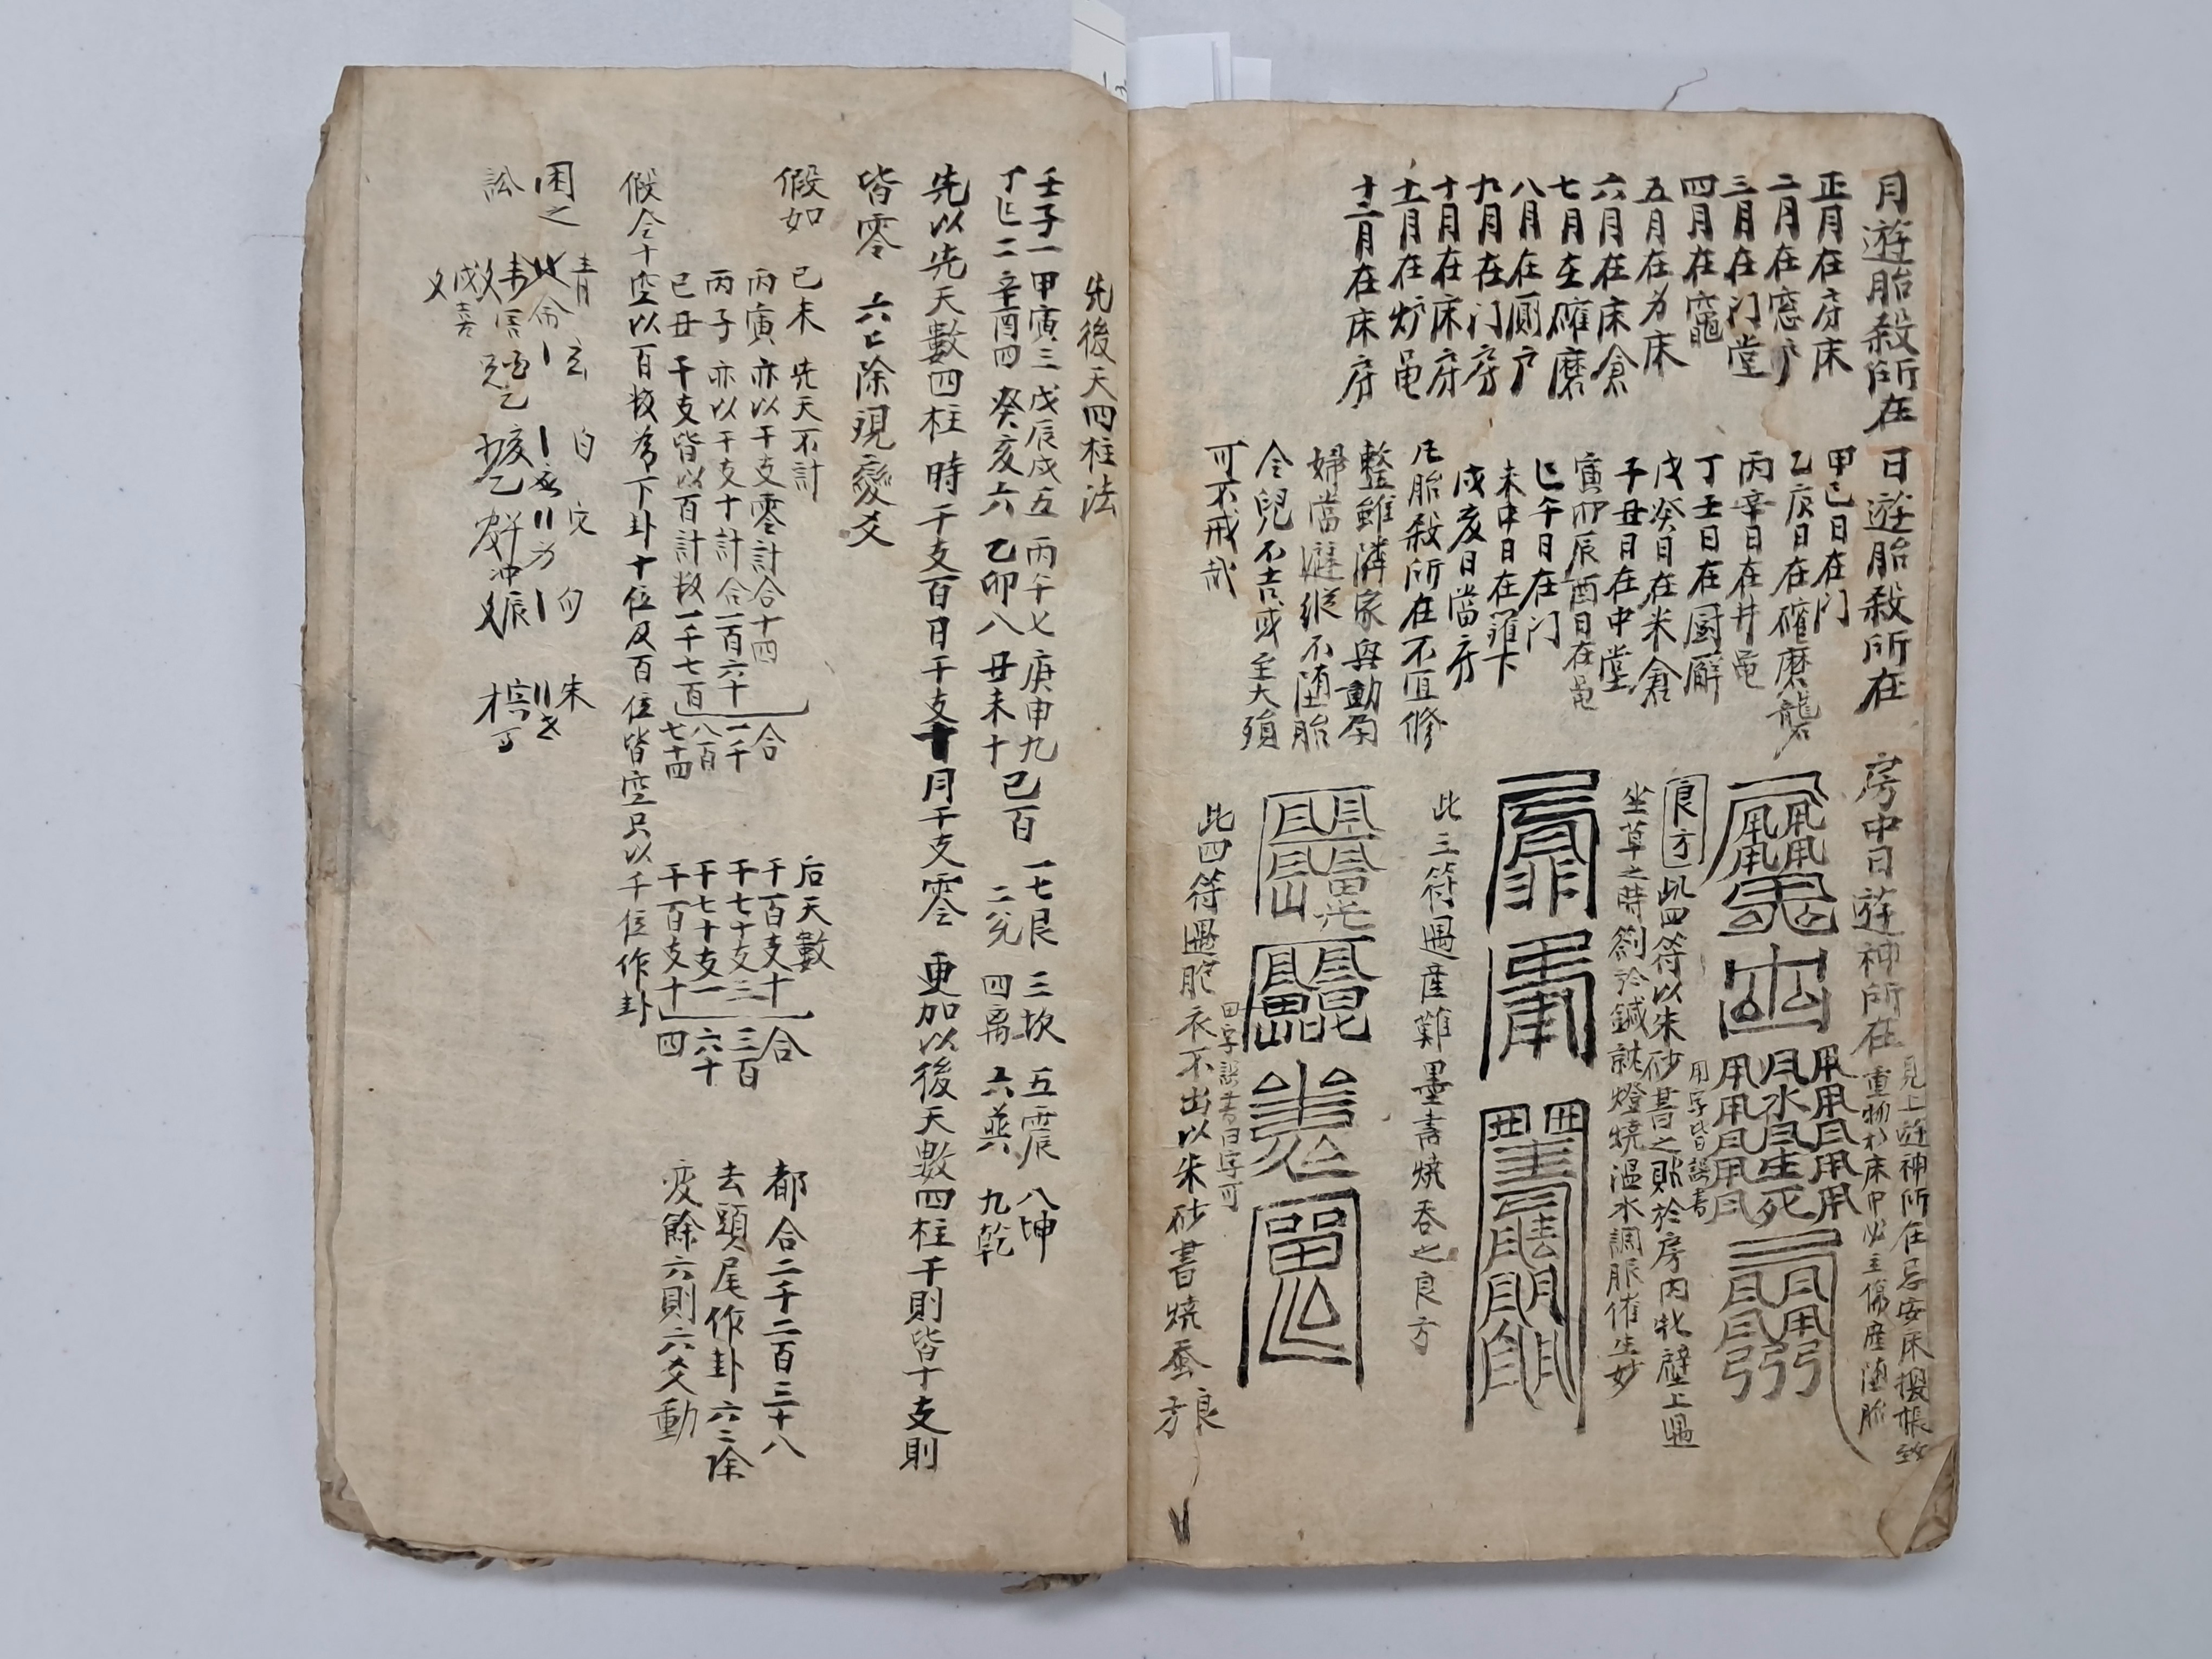 月遊胎殺所在
正月在房床
二月在窓戶
三月在门堂
四月在竈
五月在身床
六月在床倉
七月在碓磨
八月在厠戶
九月在门房
十月在床房
十一月在炉黽
十二月在床房
日遊胎殺所在
甲己日在门
乙庚日在碓磨
丙辛日在井黽
丁壬日在厨廨
戊癸日在米倉
子丑日在中堂
寅卯辰酉日在黽
巳午日在门
未申日在籬下
戌亥日當房
凡胎殺所在不宜修
整雖隣家興動孕
婦當避縱不堕胎
令兒不吉或至夭殞
可不戒哉
房中日遊神所在
見上遊神所在忌安床掇帳致
重物於床中必主傷産堕胎
用字皆誤書
良方 此四符以朱砂書之貼於房內北壁上遇
坐草之時劄於鍼就燈燒溫水調服催生妙
此三符遇産難墨書燒吞之良方
田字誤書曰字可
此四符遇胞衣不出以朱砂書燒呑良方
先後天四柱法
壬子一 甲寅三 戊辰戌五 丙午七 庚申九
丁巳二 辛酉四 癸亥六 乙卯八 丑未十 己百
一七艮 三坎 五震 八坤
二兌 四离 六巽 九乾
先以先天數四柱 時干支百 日干支十 月干支零 更加以後天數四柱干則皆十支則
皆零 六七除現變爻
假如
己未 先天不計
丙寅 亦以干支零計 合十四
丙子 亦以干支十計 合一百六十
己丑 干支皆以百計 故一千七百
合
一千
八百
七十四
后天數
干百支十
干七十支三
干七十支一
干百支十
合
三百
六十
四
都合二千二百三十八
去頭尾作卦 六二除
度餘六則六爻動
假令十空以百数為下卦十位及百位皆空只以千位作卦
困之
訟
青 玄 白 虎 句 朱